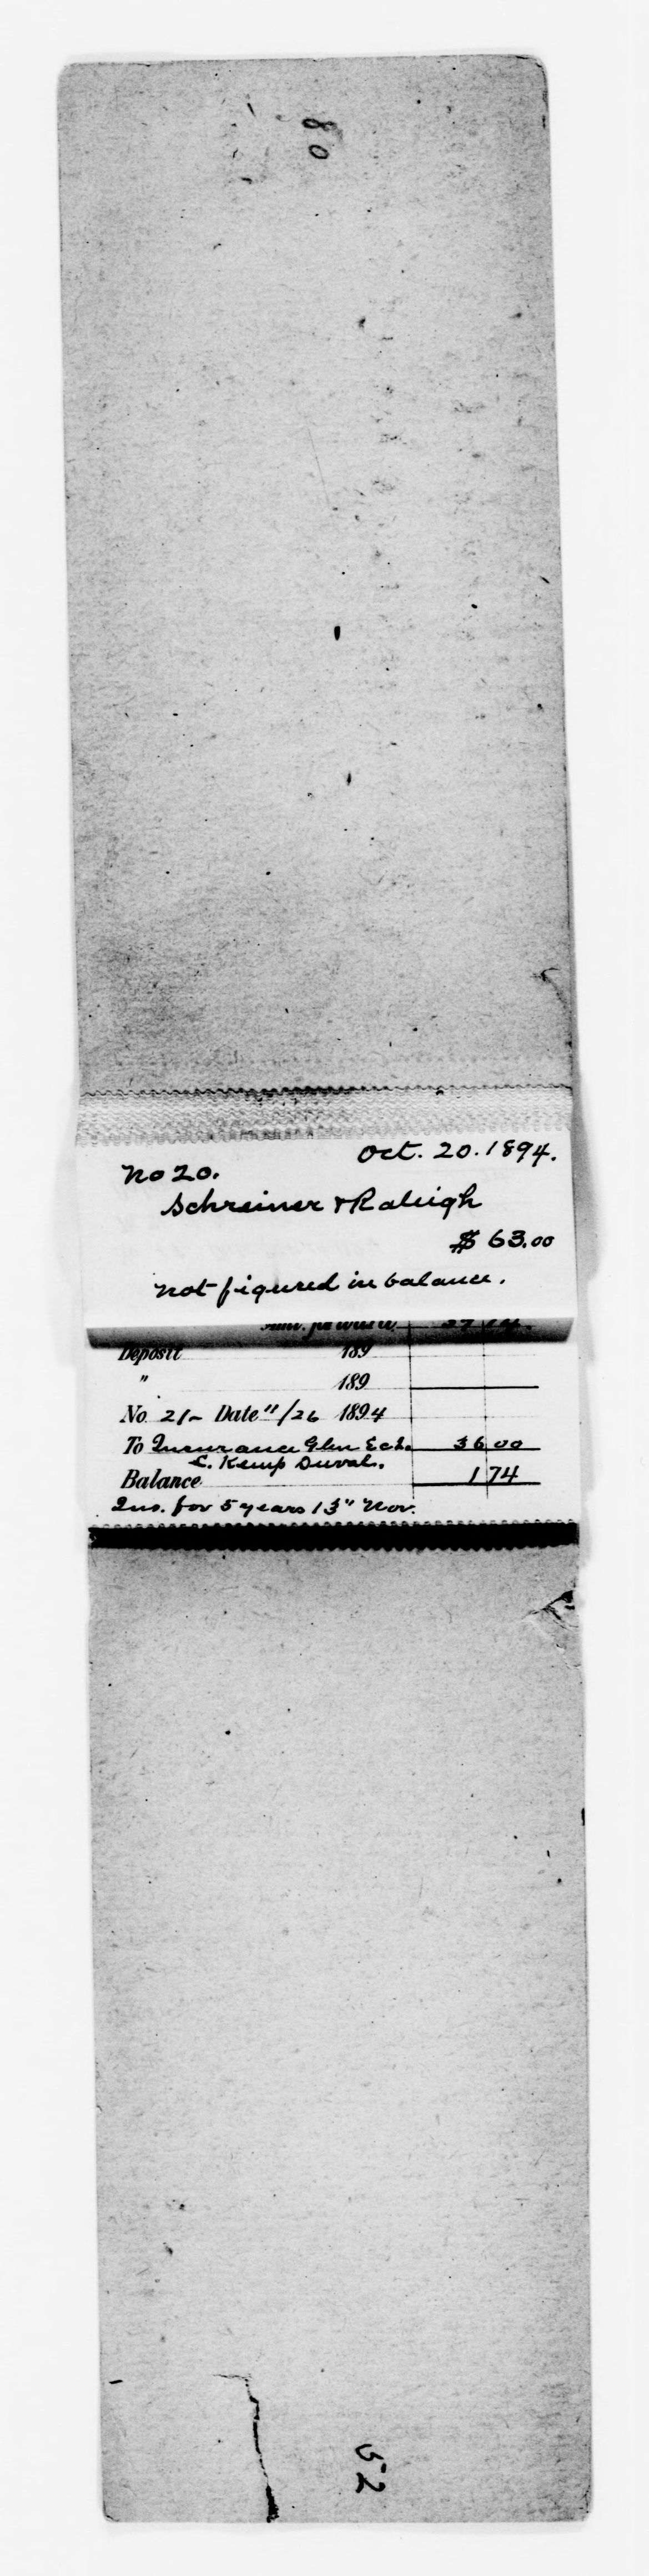 80
Oct. 20. 1894.
No 20.
Schreiner & Raleigh
$ 63.00
not figured in balance.
Deposit 189
" 189
No. 21- Date 11/26 1894
To Insurance Glen Ech. 36 00
C. Kemp Duval.
Balance 1 74
Ins. for 5 years 13" Nov.
52